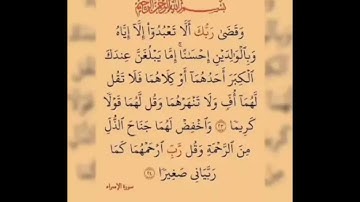 بسم الله الرحمن الرحيم
وَقَضَىٰ رَبُّكَ أَلَّا تَعْبُدُوٓا۟ إِلَّآ إِيَّاهُ
وَبِٱلْوَٰلِدَيْنِ إِحْسَٰنًا ۚ إِمَّا يَبْلُغَنَّ عِندَكَ
ٱلْكِبَرَ أَحَدُهُمَآ أَوْ كِلَاهُمَا فَلَا تَقُل
لَّهُمَآ أُفٍّ وَلَا تَنْهَرْهُمَا وَقُل لَّهُمَا قَوْلًا
كَرِيمًا ﴿٢٣﴾ وَٱخْفِضْ لَهُمَا جَنَاحَ ٱلذُّلِّ
مِنَ ٱلرَّحْمَةِ وَقُل رَّبِّ ٱرْحَمْهُمَا كَمَا
رَبَّيَانِى صَغِيرًا ﴿٢٤﴾
سورة الإسراء